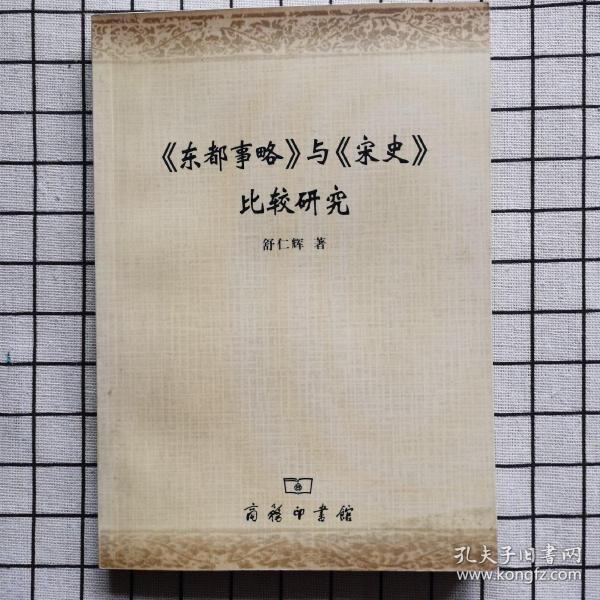 《东都事略》与《宋史》
比较研究
舒仁辉 著
商務印書館
孔夫子旧书网
www.kongfz.com